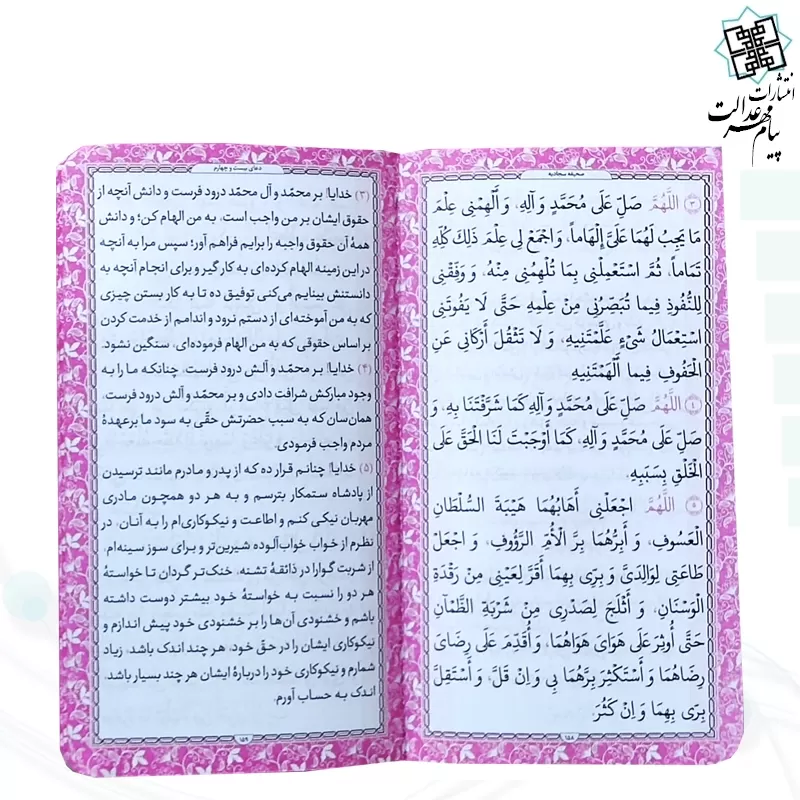 انتشارات
پیام مهر عدالت
صحیفه سجادیه
(٣) اَللّٰهُمَّ صَلِّ عَلَى مُحَمَّدٍ وَآلِهِ، وَ أَلْهِمْنِي عِلْمَ
مَا يَجِبُ لَهُمَا عَلَيَّ إِلْهَاماً، وَ اجْمَعْ لِي عِلْمَ ذَلِكَ كُلِّهِ
تَمَاماً، ثُمَّ اسْتَعْمِلْنِي بِمَا تُلْهِمُنِي مِنْهُ، وَ وَفِّقْنِي
لِلنُّفُوذِ فِيمَا تُبَصِّرُنِي مِنْ عِلْمِهِ حَتَّى لَا يَفُوتَنِي
اسْتِعْمَالُ شَيْءٍ عَلَّمْتَنِيهِ، وَ لَا تَثْقُلَ أَرْكَانِي عَنِ
الْحَفُوفِ فِيمَا أَلْهَمْتَنِيهِ
(٤) اَللّٰهُمَّ صَلِّ عَلَى مُحَمَّدٍ وَآلِهِ كَمَا شَرَّفْتَنَا بِهِ، وَ
صَلِّ عَلَى مُحَمَّدٍ وَآلِهِ، كَمَا أَوْجَبْتَ لَنَا الْحَقَّ عَلَى
الْخَلْقِ بِسَبَبِهِ.
(٥) اَللّٰهُمَّ اجْعَلْنِي أَهَابُهُمَا هَيْبَةَ السُّلْطَانِ
الْعَسُوفِ، وَ أَبَرُّهُمَا بِرَّ الْأُمِّ الرَّؤُوفِ، وَ اجْعَلْ
طَاعَتِي لِوَالِدَيَّ وَ بِرِّي بِهِمَا أَقَرَّ لِعَيْنِي مِنْ رَقْدَةِ
الْوَسْنَانِ، وَ أَثْلَجَ لِصَدْرِي مِنْ شَرْبَةِ الظَّمْآنِ
حَتَّى أُوثِرَ عَلَى هَوَايَ هَوَاهُمَا، وَ أُقَدِّمَ عَلَى رِضَايَ
رِضَاهُمَا وَ أَسْتَكْثِرَ بِرَّهُمَا بِي وَ إِنْ قَلَّ، وَ أَسْتَقِلَّ
بِرِّي بِهِمَا وَ إِنْ كَثُرَ.
١٥٨
دعای بیست و چهارم
(٣) خدایا! بر محمّد و آل محمّد درود فرست و دانش آنچه از
حقوق ایشان بر من واجب است، به من الهام کن؛ و دانش
همهٔ آن حقوق واجبه را برایم فراهم آور؛ سپس مرا به آنچه
در این زمینه الهام کرده‌ای به کار گیر و برای انجام آنچه به
دانستنش بینایم می‌کنی توفیق ده تا به کار بستن چیزی
که به من آموخته‌ای از دستم نرود و اندامم از خدمت کردن
بر اساس حقوقی که به من الهام فرموده‌ای، سنگین نشود.
(۴) خدایا! بر محمّد و آلش درود فرست، چنانکه ما را به
وجود مبارکش شرافت دادی و بر محمّد و آلش درود فرست،
همان‌سان که به سبب حضرتش حقّی به سود ما بر عهدهٔ
مردم واجب فرمودی.
(۵) خدایا! چنانم قرار ده که از پدر و مادرم مانند ترسیدن
از پادشاه ستمکار بترسم و به هر دو همچون مادری
مهربان نیکی کنم و اطاعت و نیکوکاری‌ام را به آنان، در
نظرم از خواب خواب‌آلوده شیرین‌تر و برای سوز سینه‌ام،
از شربت گوارا در ذائقهٔ تشنه، خنک‌تر گردان تا خواستهٔ
هر دو را نسبت به خواستهٔ خود بیشتر دوست داشته
باشم و خشنودی آن‌ها را بر خشنودی خود پیش اندازم و
نیکوکاری ایشان را در حقّ خود، هر چند اندک باشد، زیاد
شمارم و نیکوکاری خود را دربارهٔ ایشان هر چند بسیار باشد،
اندک به حساب آورم.
١٥٩